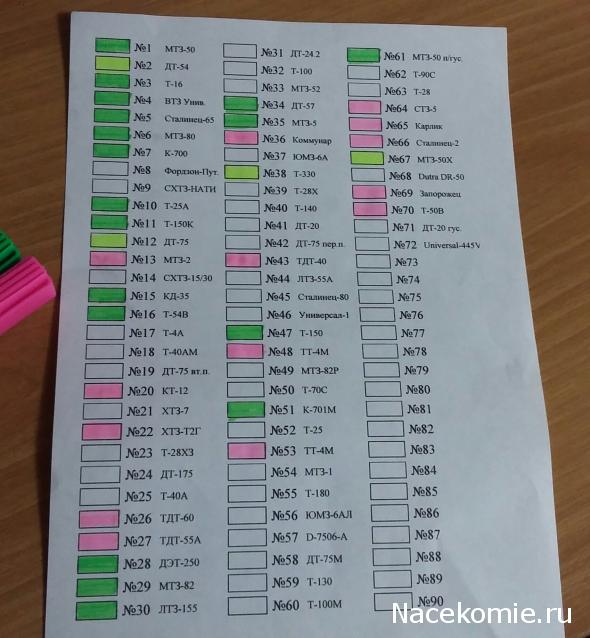 №1 МТЗ-50
№2 ДТ-54
№3 Т-16
№4 ВТЗ Унив.
№5 Сталинец-65
№6 МТЗ-80
№7 К-700
№8 Фордзон-Пут.
№9 СХТЗ-НАТИ
№10 Т-25А
№11 Т-150К
№12 ДТ-75
№13 МТЗ-2
№14 СХТЗ-15/30
№15 КД-35
№16 Т-54В
№17 Т-4А
№18 Т-40АМ
№19 ДТ-75 вт.п.
№20 КТ-12
№21 ХТЗ-7
№22 ХТЗ-Т2Г
№23 Т-28Х3
№24 ДТ-175
№25 Т-40А
№26 ТДТ-60
№27 ТДТ-55А
№28 ДЭТ-250
№29 МТЗ-82
№30 ЛТЗ-155
№31 ДТ-24.2
№32 Т-100
№33 МТЗ-52
№34 ДТ-57
№35 МТЗ-5
№36 Коммунар
№37 ЮМЗ-6А
№38 Т-330
№39 Т-28Х
№40 Т-140
№41 ДТ-20
№42 ДТ-75 пер.п.
№43 ТДТ-40
№44 ЛТЗ-55А
№45 Сталинец-80
№46 Универсал-1
№47 Т-150
№48 ТТ-4М
№49 МТЗ-82Р
№50 Т-70С
№51 К-701М
№52 Т-25
№53 ТТ-4М
№54 МТЗ-1
№55 Т-180
№56 ЮМЗ-6АЛ
№57 D-7506-А
№58 ДТ-75М
№59 Т-130
№60 Т-100М
№61 МТЗ-50 п/гус.
№62 Т-90С
№63 Т-28
№64 СТЗ-5
№65 Карлик
№66 Сталинец-2
№67 МТЗ-50Х
№68 Dutra DR-50
№69 Запорожец
№70 Т-50В
№71 ДТ-20 гус.
№72 Universal-445V
№73
№74
№75
№76
№77
№78
№79
№80
№81
№82
№83
№84
№85
№86
№87
№88
№89
№90
Nacekomie.ru